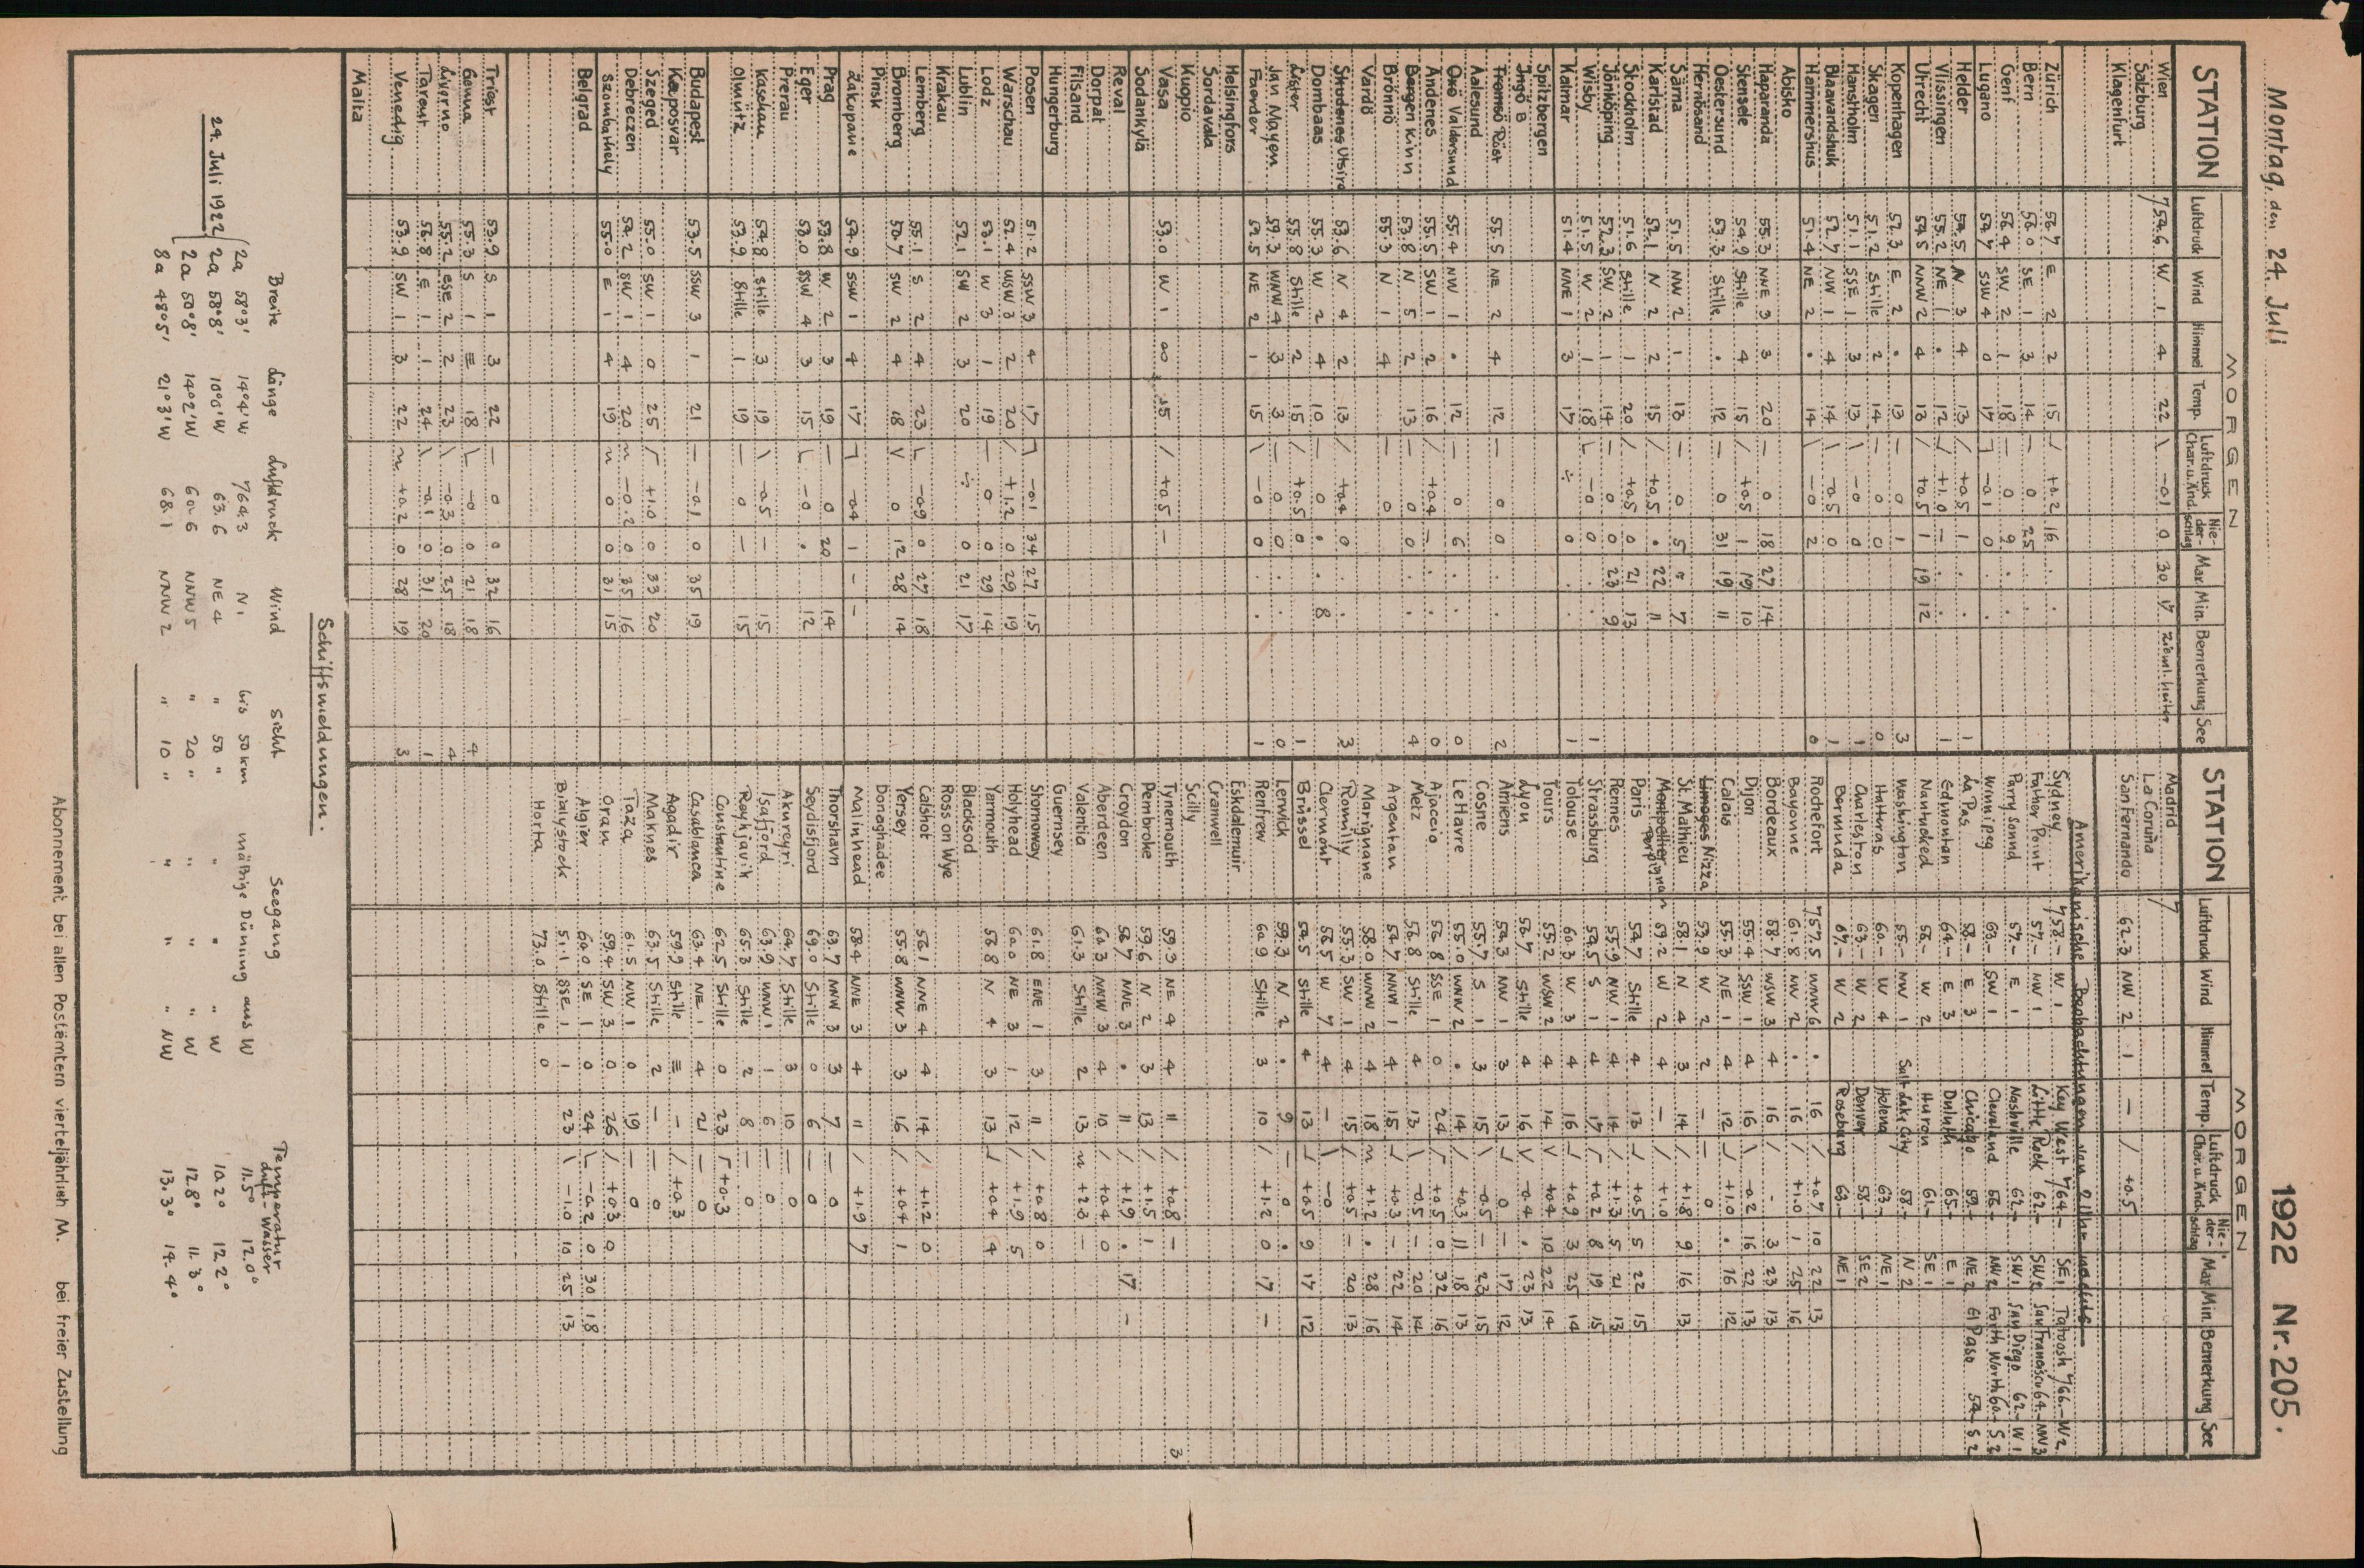 Montag, den 24. Juli 1922 Nr. 205.
MORGEN
STATION Luftdruck Wind Himmel Temp. Luftdruck Char. u. Änd. Nie-der-schlag Max Min. Bemerkung See
Wien 754.6 W 1 4 22 \ -0.1 0 30 17
Salzburg
Klagenfurt
Zürich 56.7 E 2 2 15 +0.2 16
Bern 56.0 SE 1 3 14 — 0 25
Genf 56.4 SW 2 1 18 — 0 9
Lugano 54.7 SSW 4 0 17 -0.1 0
Helder 54.5 N 3 4 13 / +0.5 1
Vlissingen 55.2 NE 1 • 12 +1.0 —
Utrecht 54.5 NNW 2 4 13 / +0.5 1 19 12
Kopenhagen 52.3 E 2 • 13 — 0 1 3
Skagen 51.2 Stille 2 14 — 0 0 0
Hanstholm 51.1 SSE 1 3 13 \ -0 0 1
Blaavandshuk 52.7 NW 1 4 14 -0.5 0 1
Hammershus 51.4 NE 2 • 14 \ -0 2 0
Abisko
Haparanda 55.3 NNE 3 3 20 — 0 18 27 14
Stensele 54.9 Stille 4 15 / +0.5 1 19 10
Oestersund 53.3 Stille • 12 — 0 31 19 11
Hernösand
Särna 51.5 NW 2 1 13 — 0 5 • 7
Karlstad 52.1 N 2 2 15 / +0.5 • 22 11
Stockholm 51.6 Stille 1 20 / +0.5 0 21 13
Jönköping 52.3 SW 2 1 14 — 0 0 23 9
Wisby 51.5 W 2 1 18 -0 0 1
Kalmar 51.4 NNE 1 3 17 ÷ 0 1
Spitzbergen
Ingö B
Tromsö Röst 55.5 NE 2 4 12 — 0 0 2
Aalesund
Oxö Valdersund 55.4 NW 1 • 12 — 0 6 0
Andenes 55.5 SW 1 2 16 / +0.4 — 0
Bergen Kinn 53.8 N 5 2 13 — 0 0 4
Brönnö 55.3 N 1 4 — 0
Vardö
Skudenes Utsira 53.6 N 4 2 13 / +0.4 0 3
Dombaas 55.3 W 2 4 10 — 0 • 8
Lister 55.8 Stille 2 15 / +0.5 0 1
Jan Mayen 59.3 WNW 4 3 3 — 0 0 0
Faerder 52.5 NE 2 1 15 \ -0 0 1
Helsingfors
Sordavala
Kuopio
Vasa 53.0 W 1 ∞ 15 / +0.5 —
Sodankylä
Reval
Dorpat
Filsand
Hungerburg
Posen 51.2 SSW 3 4 17 ¬ -0.1 34 27 15
Warschau 52.4 WSW 3 2 20 / +1.2 0 29 19
Lodz 53.1 W 3 1 19 — 0 0 29 14
Lublin 52.1 SW 2 3 20 ÷ 0 21 17
Krakau
Lemberg 55.1 S 2 4 23 -0.9 0 27 18
Bromberg 50.7 SW 2 4 18 V 0 12 28 14
Pinsk
Zakopane 54.9 SSW 1 4 17 ¬ -0.4 1 — —
Prag 53.8 W 2 3 19 — 0 20 14
Eger 53.0 SSW 4 3 15 -0 • 12
Prerau
Kaschau 54.8 Stille 3 19 \ -0.5 — 15
Olmütz 53.9 Stille 1 19 — 0 — 15
Budapest 53.5 SSW 3 1 21 — -0.1 0 35 19
Kaposvar
Szeged 55.0 SW 1 0 25 +1.0 0 33 20
Debreczen 54.2 SW 1 4 20 ~ -0.2 0 35 16
Szombathely 55.0 E 1 4 19 ~ 0 0 31 15
Belgrad
Triest 53.9 S 1 3 22 — 0 0 32 16
Genua 55.3 S 1 ≡ 18 -0 0 21 18 4
Livorno 55.2 ESE 2 2 23 \ -0.3 0 25 18 4
Tarent 56.8 E 1 1 24 \ -0.1 0 31 20 1
Venedig 53.9 SW 1 3 22 ~ +0.2 0 28 19 3
Malta
MORGEN
STATION Luftdruck Wind Himmel Temp. Luftdruck Char. u. Änd. Nie-der-schlag Max Min. Bemerkung See
Madrid
La Coruña
San Fernando 62.3 NW 2 1 — / +0.5
Amerikanische Beobachtungen von 2 Uhr nachts
Sydney 758.— W 1 Key West 764.— SE 1 Tatoosh 766.— W 2
Father Point 57.— NW 1 Little Rock 62.— SW 2 San Francisco 64.— NW 3
Parry Sond 57.— E 1 Nashville 62.— SW 1 San Diego 62.— W 1
Winnipeg 63.— SW 1 Cleveland 56.— NW 2 Forth Worth 60.— S 2
La Pas 58.— E 3 Chicago 59.— NE 2 El Paso 54.— S 2
Edmonton 64.— E 3 Duluth 65.— E 1
Nantucked 56.— W 2 Huron 61.— SE 1
Washington 55.— NW 1 Salt Lake City 58.— N 2
Hatteras 60.— W 4 Helena 63.— NE 1
Charleston 63.— W 2 Denver 58.— SE 2
Bermuda 67.— W 2 Roseburg 63.— NE 1
Rochefort 757.5 WNW 6 • 16 / +0.7 10 22 13
Bayonne 61.8 NW 2 • 16 / +1.0 1 25 16
Bordeaux 58.7 WSW 3 4 16 / - 3 23 13
Dijon 55.4 SSW 1 4 16 \ -0.2 16 22 13
Calais 55.3 NE 1 4 12 +1.0 • 16 12
Limoges Nizza 53.9 W 2 2 — — 0
St. Mathieu 58.1 N 4 3 14 / +1.8 9 16 13
Montpellier Perpignan 59.2 W 2 4 — / +1.0
Paris 54.7 Stille 4 13 +0.5 5 22 15
Rennes 55.9 NW 1 4 14 / +1.3 5 21 13
Strassburg 54.5 S 1 4 17 +0.2 8 19 15
Tolouse 60.3 W 3 4 16 +0.9 3 25 14
Tours 55.2 WSW 2 4 14 V +0.4 10 22 14
Lyon 56.7 Stille 4 16 V -0.4 • 23 13
Amiens 54.3 NW 1 3 13 0 — 17 12
Cosne 55.7 S 1 3 15 \ -0.5 — 23 15
Le Havre 55.0 WNW 2 • 14 / +0.3 11 18 13
Ajaccio 56.8 SSE 1 0 24 +0.5 0 32 16
Metz 56.8 Stille 4 13 \ -0.5 — 20 14
Argentan 54.7 NNW 1 4 15 +0.3 — 22 14
Marignane 58.0 WNW 2 4 18 ~ +1.2 • 28 16
Romilly 55.3 SW 1 4 15 / +0.5 — 20 13
Clermont 56.5 W 7 4 — \ -0
Brüssel 54.5 Stille 4 13 +0.5 9 17 12
Lerwick 59.3 N 2 • 9 — 0 •
Renfrew 60.9 Stille 3 10 / +1.2 0 17 —
Eskdalemuir
Cranwell
Scilly
Tynemouth 59.3 NE 4 4 11 / +0.8 — 3
Pembroke 59.6 N 2 3 13 / +1.5 1
Croydon 56.7 NNE 3 • 11 / +1.9 • 17 —
Aberdeen 60.3 NNW 3 4 10 / +0.4 0
Valentia 61.3 Stille 2 13 ~ +2.0 —
Guernsey
Stornoway 61.8 ENE 1 3 11 / +0.8 0
Holyhead 60.0 NE 3 1 12 / +1.9 5
Yarmouth 56.8 N 4 3 13 +0.4 4
Blacksod
Ross on Wye
Calshot 56.1 NNE 4 4 14 / +1.2 0
Yersey 55.8 WNW 3 3 16 / +0.4 1
Donaghadee
Malinhead 58.4 NNE 3 4 11 / +1.9 7
Thorshavn 63.7 NNW 3 3 7 — 0
Seydisfjord 69.0 Stille 0 6 — 0
Akureyri 64.7 Stille 3 10 — 0
Isafjord 63.9 WNW 1 1 6 — 0
Reykjavik 65.3 Stille 2 8 — 0
Constantine 62.5 Stille 0 23 +0.3
Casablanca 63.4 NE 1 4 21 — 0
Agadir 59.9 Stille ≡ — / +0.3
Maknes 63.5 Stille 2 — — 0
Taza 61.5 NW 1 0 19 — 0
Oran 59.4 SW 3 0 26 / +0.3 0
Algier 60.0 SE 1 0 24 -0.2 0 30 18
Bialystock 51.1 SSE 1 1 23 \ -1.0 10 25 13
Horta 73.0 Stille 0
Schiffsmeldungen.
Breite Länge Luftdruck Wind Sicht Seegang Temperatur Luft - Wasser
24. Juli 1922 2a 58°3' 14°4'W 764.3 N 1 bis 50 km mäßige Dünung aus W 11.5° 12.0°
2a 58°8' 10°0'W 63.6 NE 4 " 50 " " " " W 10.2° 12.2°
2a 50°8' 14°2'W 60.6 NNW 5 " 20 " " " " W 12.8° 11.3°
8a 48°5' 21°3'W 68.1 NNW 2 " 10 " " " " NW 13.3° 14.4°
Abonnement bei allen Postämtern vierteljährlich M. bei freier Zustellung